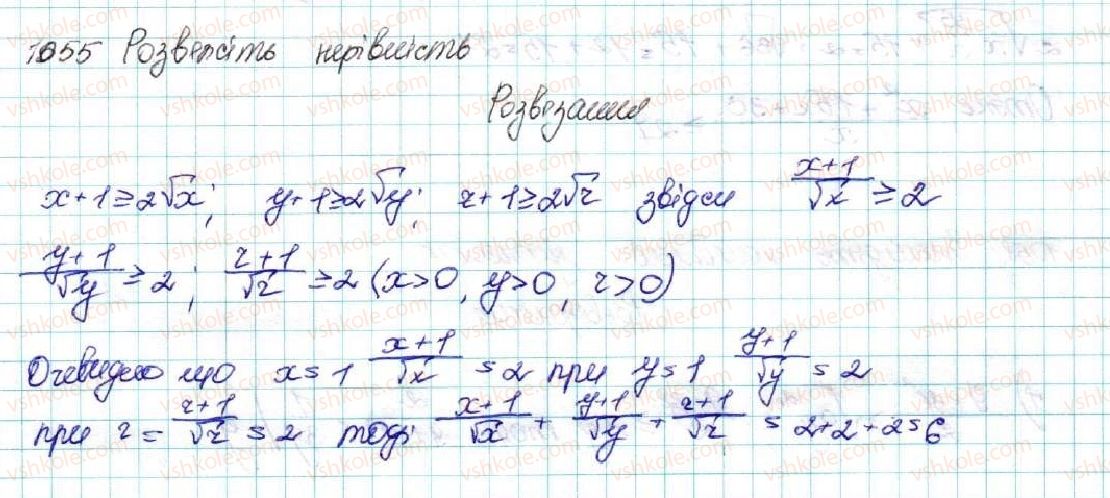 1055 Розв'яжіть нерівність
Розв'язання
x+1≥2√x; y+1≥2√y; z+1≥2√z звідси (x+1)/√x ≥ 2
(y+1)/√y ≥ 2; (z+1)/√z ≥ 2 (x>0, y>0, z>0)
Очевидно що x=1 (x+1)/√x = 2 при y=1 (y+1)/√y = 2
при z = (z+1)/√z = 2 тоді (x+1)/√x + (y+1)/√y + (z+1)/√z = 2+2+2=6